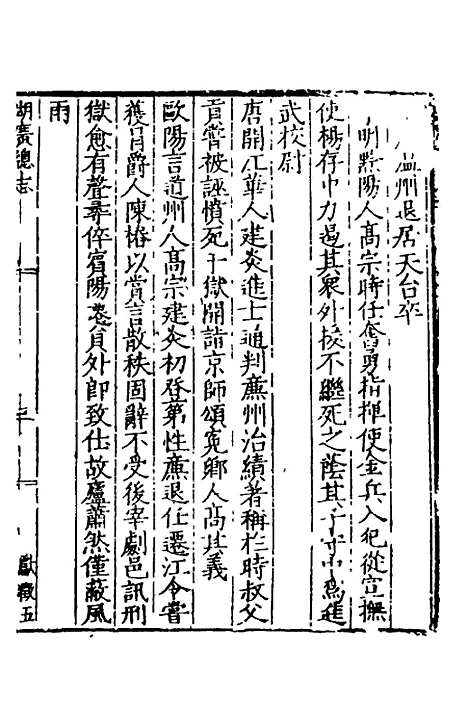 温州退居天台卒
明黔陽人高宗時任奮勇指揮使金兵入犯從宣撫
使楊存中力遏其衆外援不繼死之蔭其子守中爲進
武校尉
唐開江華人建炎進士通判廉州治績著稱於時叔父
嘗被誣憤死于獄開詣京師頌冤鄉人高其義
歐陽言道州人高宗建炎初登第性廉退任遷江令嘗
獲冒爵人陳椿以賞言散秩固辭不受後宰劇邑訊刑
獄愈有聲尋倅賓陽卷員外郎致仕故廬蕭然僅蔽風
雨
湖廣總志
獻徵五